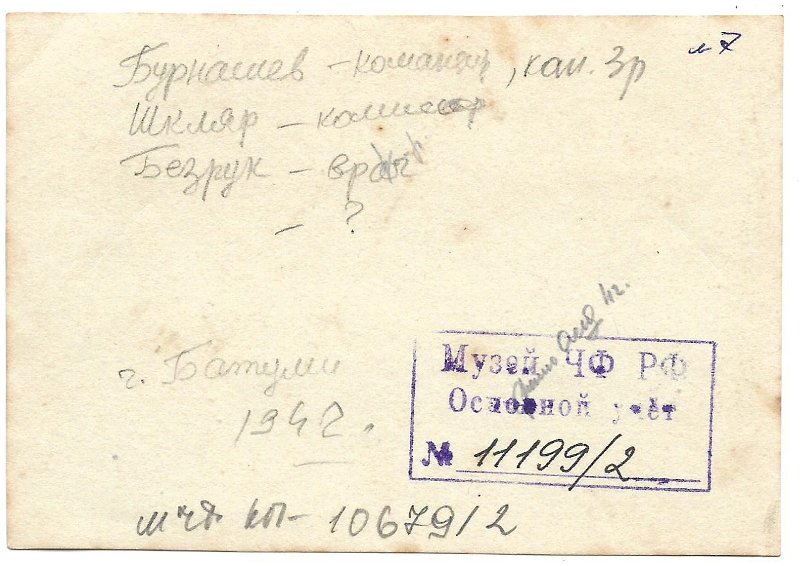 м 7
Бурнашев – командир, кап. 3р
Шкляр – комиссар
Безрук – врач
– ?
г. Батуми
1942 г.
Музей ЧФ РФ
Основной учёт
№ 11199/2
МЧФ КП- 10679/2